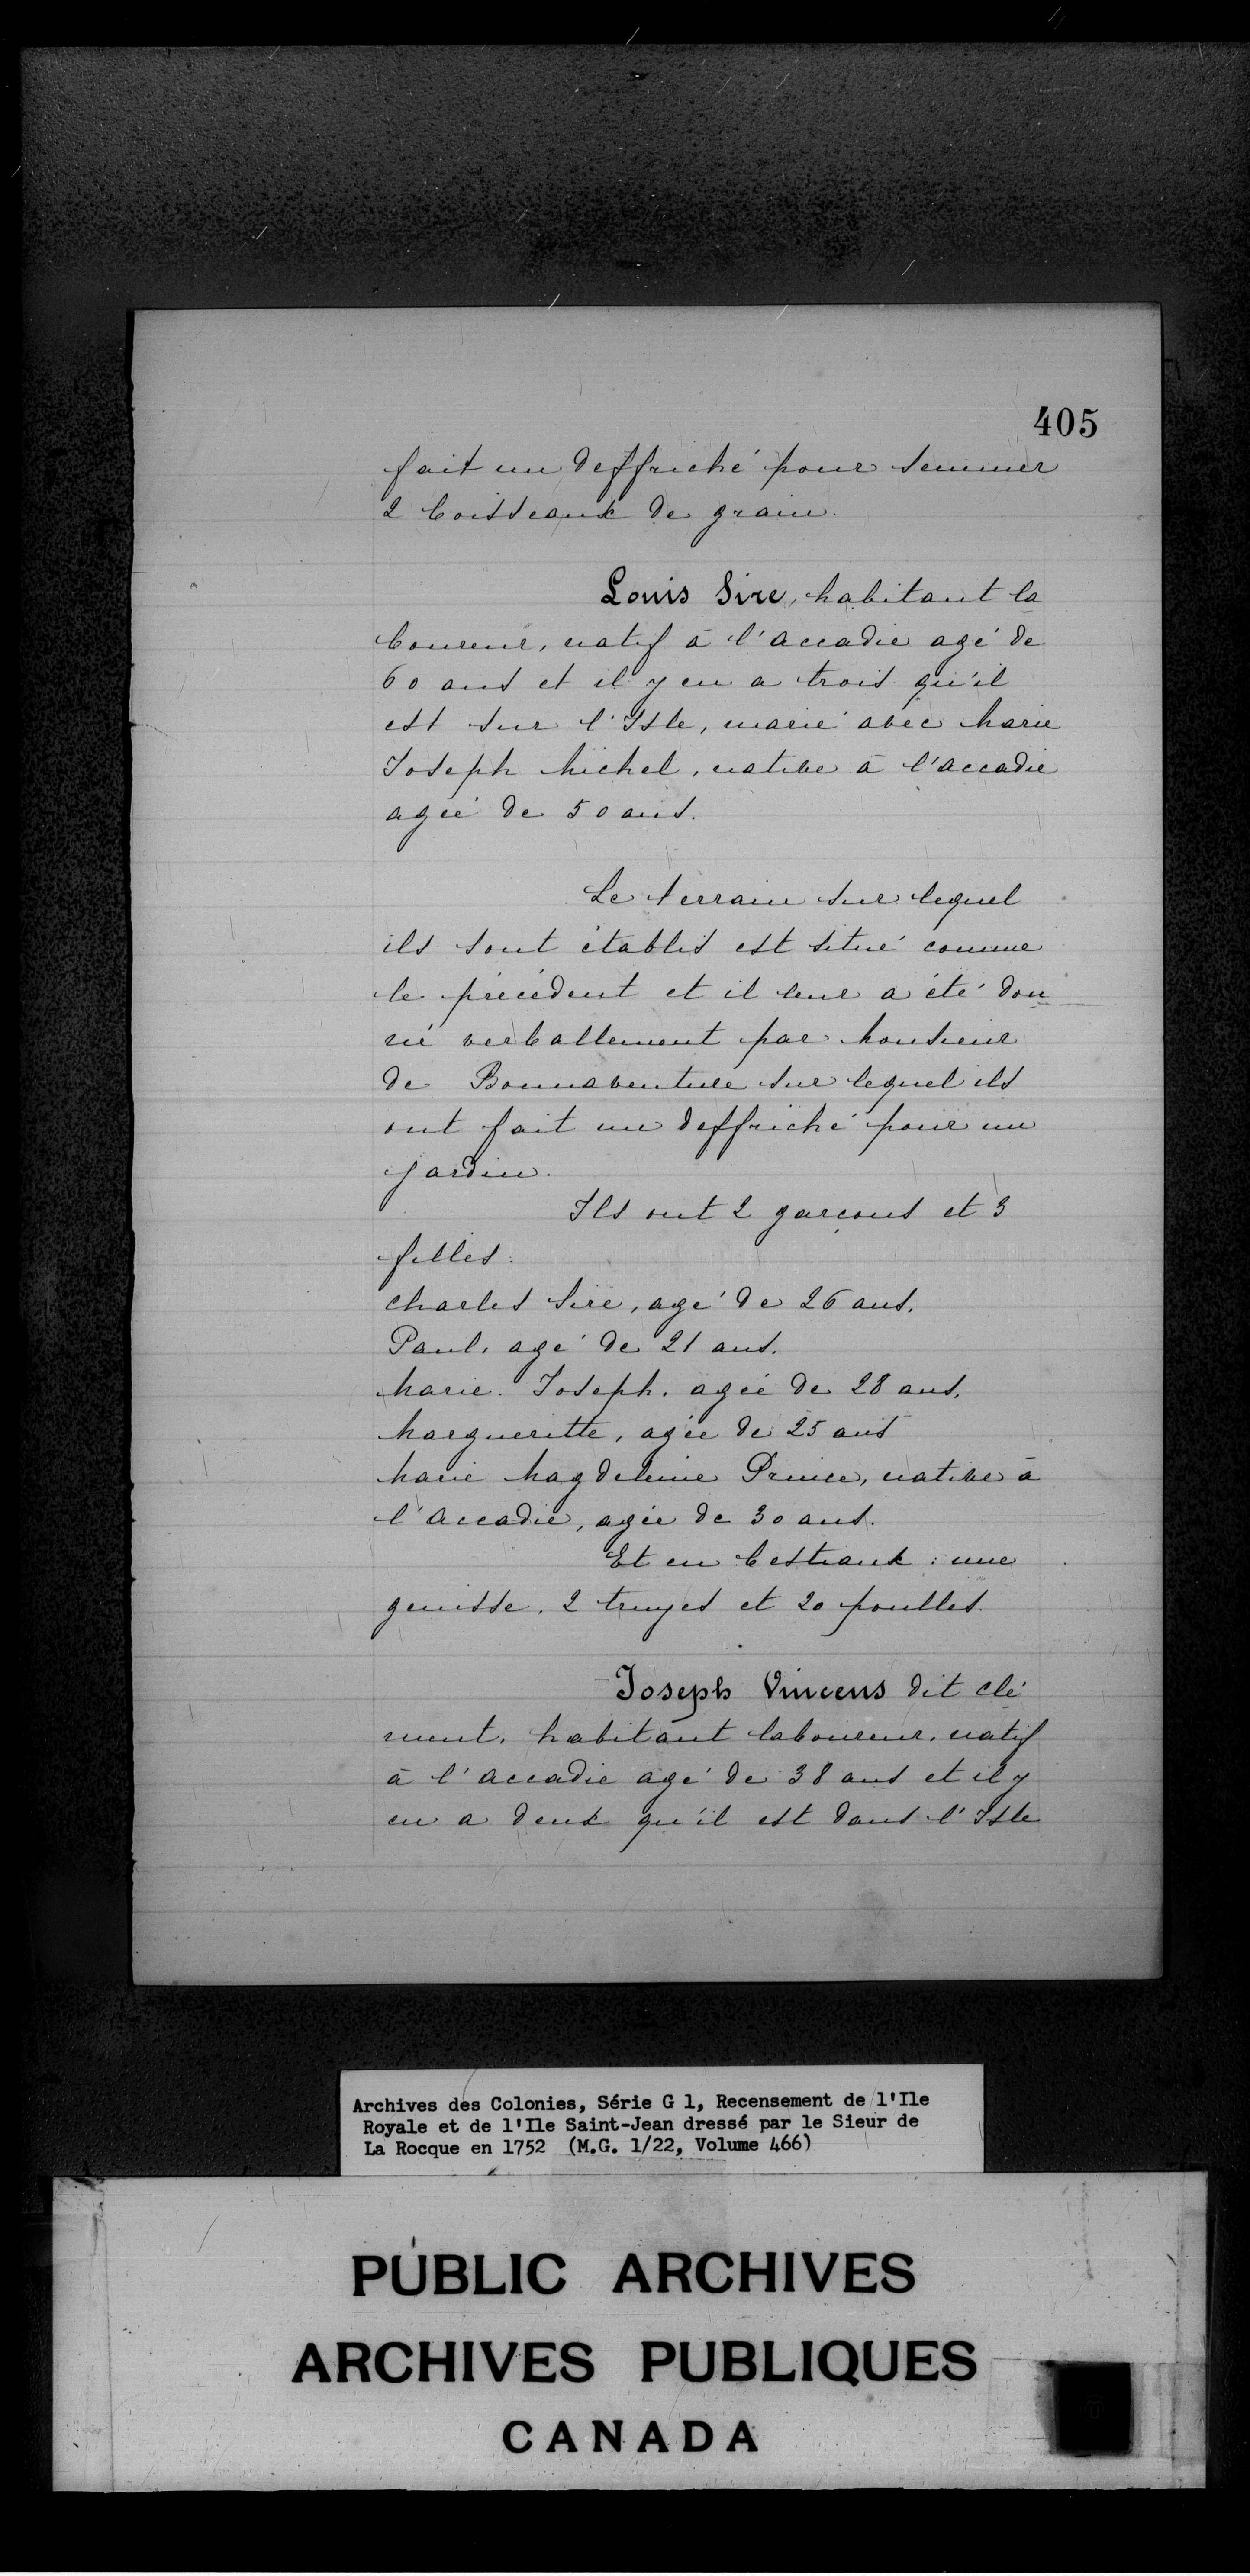 405
fait un deffriché pour semmer
2 boisseaux de grain.
Louis Sire, habitant la
boureur, natif à l'accadie agé de
60 ans et il y en a trois qu'il
est sur l'Isle, marié avec Marie
Joseph Michel, native à l'accadie
agée de 50 ans.
Le terrain sur lequel
ils sont établis est situé comme
le précédent et il leur a été don
né verballement par Monsieur
de Bonnaventure sur lequel ils
ont fait un deffriché pour un
jardin.
Ils ont 2 garçons et 3
filles:
Charles Sire, agé de 26 ans.
Paul, agé de 21 ans.
Marie. Joseph. agée de 28 ans.
Margueritte, agée de 25 ans
Marie Magdeleine Prince, native à
l'accadie, agée de 30 ans.
Et en bestiaux: une
genisse, 2 truyes et 20 poulles.
Joseph Vincens dit Clé
ment, habitant laboureur, natif
à l'accadie agé de 38 ans et il y
en a deux qu'il est dans l'Isle
Archives des Colonies, Série G 1, Recensement de l'Ile
Royale et de l'Ile Saint-Jean dressé par le Sieur de
La Rocque en 1752 (M.G. 1/22, Volume 466)
PUBLIC ARCHIVES
ARCHIVES PUBLIQUES
CANADA